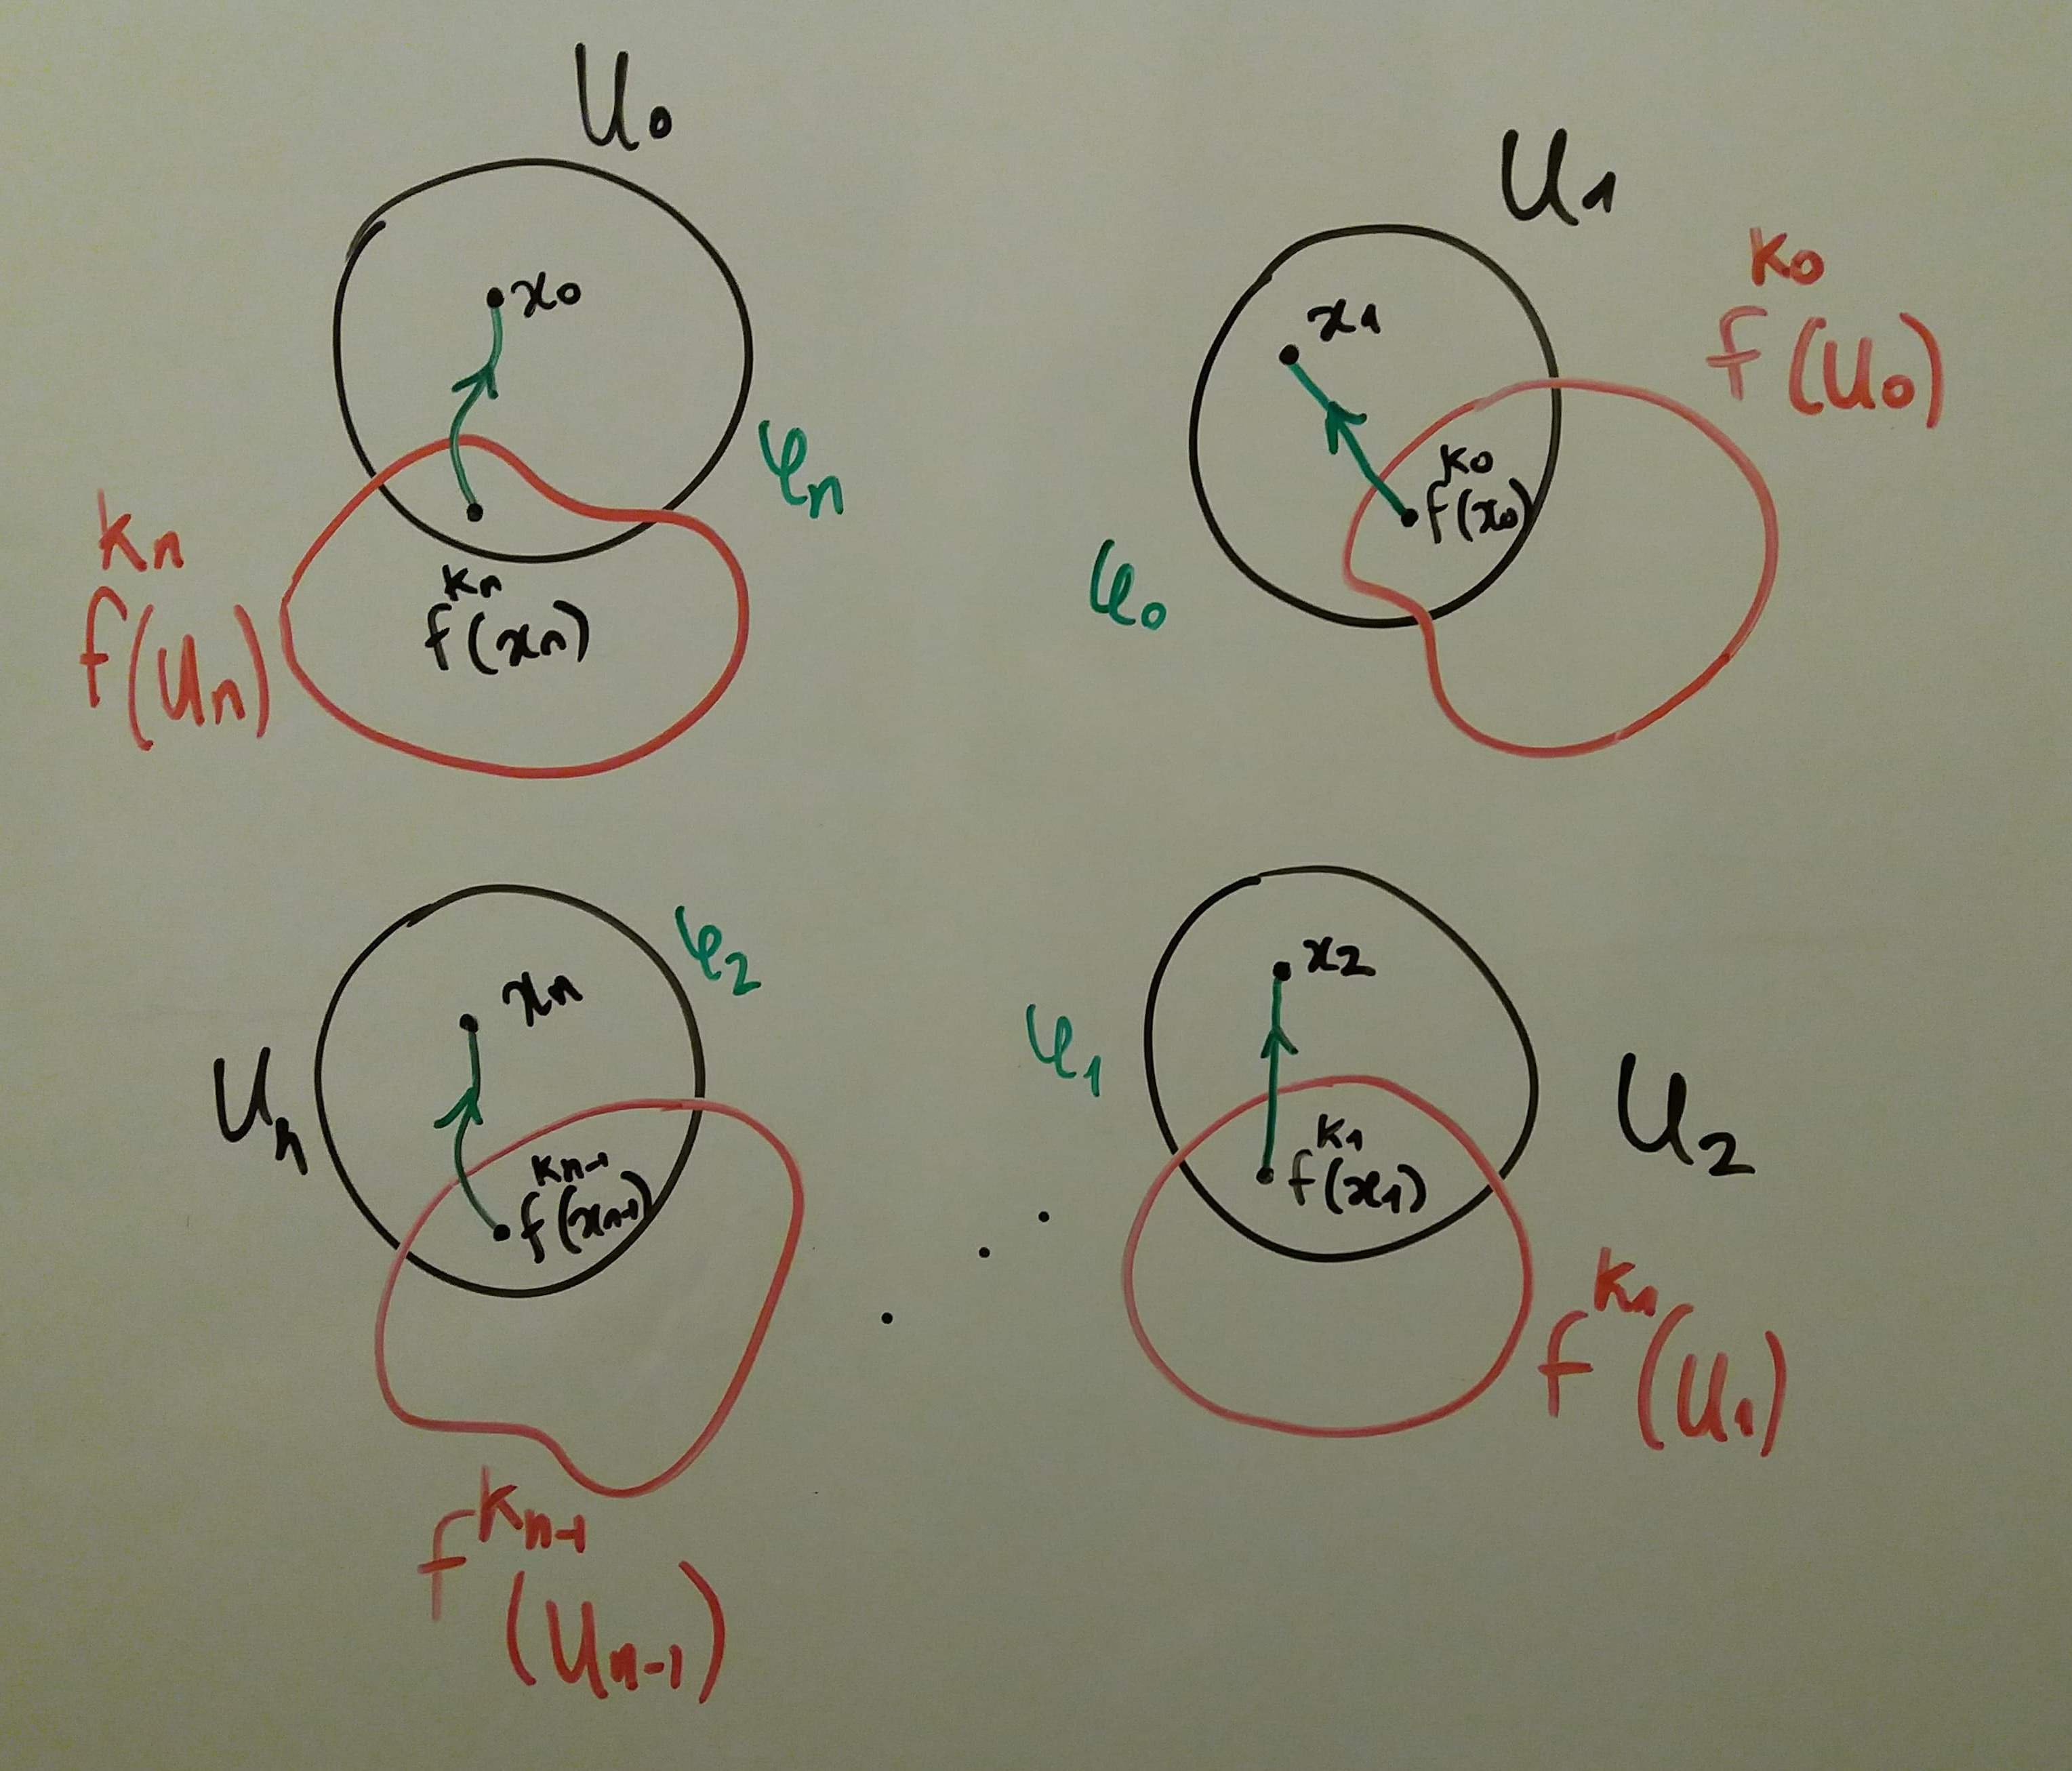 U₀
x₀
φₙ
f^{kₙ}(Uₙ)
f^{kₙ}(xₙ)
U₁
f^{k₀}(U₀)
x₁
f^{k₀}(x₀)
φ₀
φ₂
xₙ
Uₙ
f^{kₙ₋₁}(xₙ₋₁)
f^{kₙ₋₁}
(Uₙ₋₁)
x₂
φ₁
U₂
f^{k₁}(x₁)
f^{k₁}(U₁)